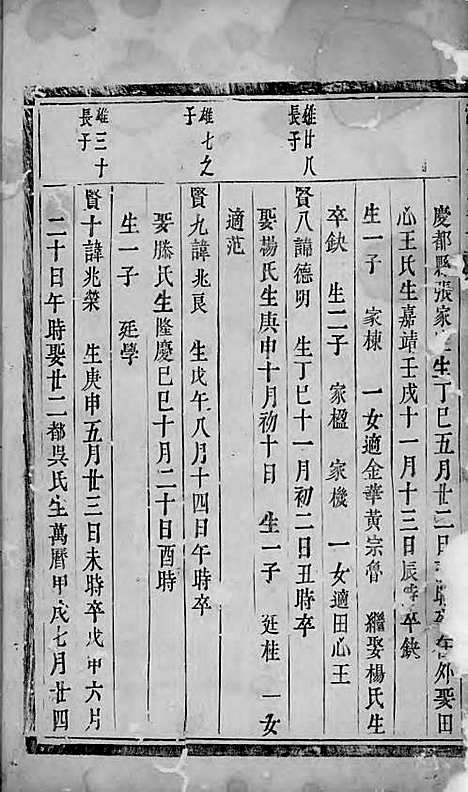 慶都縣張家 生丁巳五月廿二日 時卒 外娶田
心王氏生嘉靖壬戌十一月十三日辰時卒缺
生一子 家棟 一女適金華黃宗魯 繼娶楊氏生
卒缺 生二子 家楹 家機 一女適田心王
雄廿八長子
賢八諱德明 生丁巳十一月初二日丑時卒
娶楊氏生庚申十月初十日 生一子 廷桂 一女
適范
雄七之子
賢九諱兆良 生戊午八月十四日午時卒
娶滕氏生隆慶己巳十月二十日酉時
生一子 廷學
雄三十長子
賢十諱兆榮 生庚申五月廿三日未時卒戊申六月
二十日午時娶廿二都吳氏生萬曆甲戌七月廿四